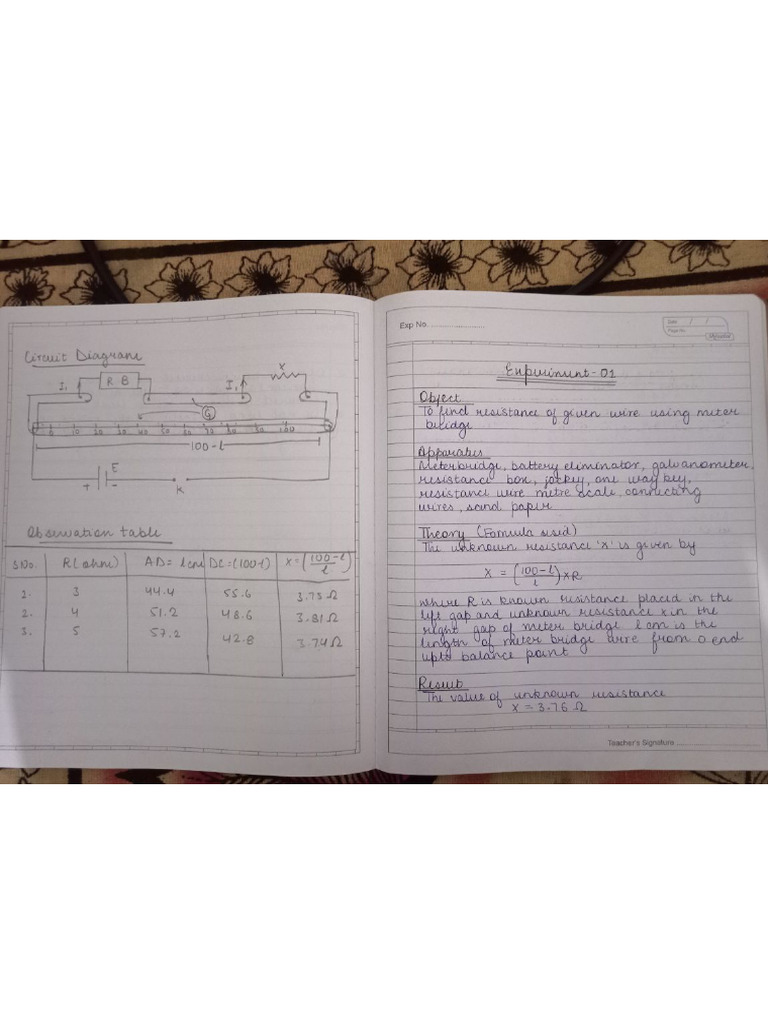 Circuit Diagram
X
R B
I₁
I₁
G
0 10 20 30 40 50 60 70 80 90 100
100-l
E
+ -
K
Observation table
S No. R(ohm) AD= l cm DC=(100-l) X=(100-l/l)
1. 3 44.4 55.6 3.75Ω
2. 4 51.2 48.6 3.81Ω
3. 5 57.2 42.8 3.74Ω
Exp No.
Date / /
Page No.
Experiment-01
Object
To find resistance of given wire using meter
bridge
Apparatus
Meterbridge, battery eliminator, galvanometer,
resistance box, jockey, one way key,
resistance wire metre scale, connecting
wires, sand paper
Theory (Formula used)
The unknown resistance 'X' is given by
X = (100-l/l)×R
where R is known resistance placed in the
left gap and unknown resistance x in the
right gap of meter bridge l cm is the
length of meter bridge wire from a end
upto balance point
Result
The value of unknown resistance
X = 3.76 Ω
Teacher's Signature